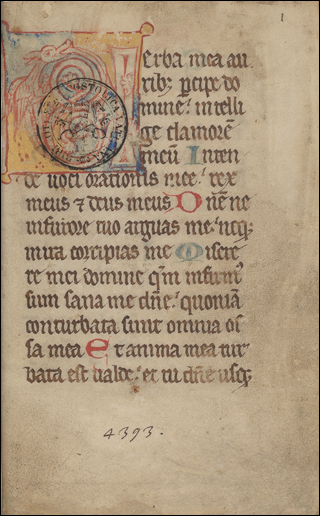 1
Verba mea au
rib; ꝑcipe do
mine: intelli
ge clamorē
meū Inten
de voci orationis mee: rex
meus ⁊ deus meus Dn̄e ne
in furore tuo arguas me: neq;
in ira corripias me Misere
re mei domine qm̄ infirmꝰ
sum sana me dn̄e: quoniā
conturbata sunt omnia os
sa mea Et anima mea tur
bata est valde: et tu dn̄e usq;
4393.